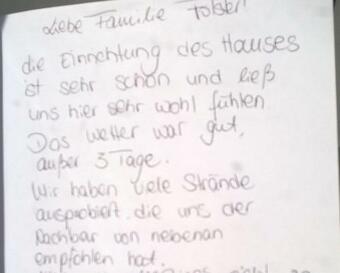 Liebe Familie Tolster!
die Einrichtung des Hauses
ist sehr schön und ließ
uns hier sehr wohl fühlen
Das Wetter war gut,
außer 3 Tage.
Wir haben viele Strände
ausprobiert, die uns der
Nachbar von nebenan
empfohlen hat.